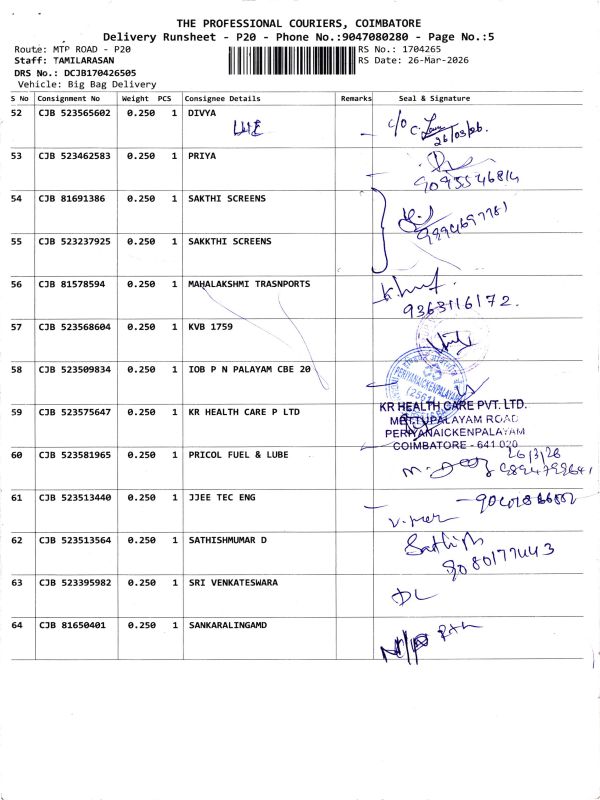 THE PROFESSIONAL COURIERS, COIMBATORE
Delivery Runsheet - P20 - Phone No.:9047080280 - Page No.:5
Route: MTP ROAD - P20
RS No.: 1704265
Staff: TAMILARASAN
RS Date: 26-Mar-2026
DRS No.: DCJB170426505
Vehicle: Big Bag Delivery
S No Consignment No Weight PCS Consignee Details Remarks Seal & Signature
52 CJB 523565602 0.250 1 DIVYA c/o
26/03/26.
53 CJB 523462583 0.250 1 PRIYA
54 CJB 81691386 0.250 1 SAKTHI SCREENS
55 CJB 523237925 0.250 1 SAKKTHI SCREENS
56 CJB 81578594 0.250 1 MAHALAKSHMI TRASNPORTS
9363116172.
57 CJB 523568604 0.250 1 KVB 1759
58 CJB 523509834 0.250 1 IOB P N PALAYAM CBE 20
PERIYANAICKENPALAYAM
59 CJB 523575647 0.250 1 KR HEALTH CARE P LTD
KR HEALTH CARE PVT. LTD.
METTUPALAYAM ROAD
PERIYANAICKENPALAYAM
COIMBATORE - 641 020
60 CJB 523581965 0.250 1 PRICOL FUEL & LUBE 26/3/26
61 CJB 523513440 0.250 1 JJEE TEC ENG
62 CJB 523513564 0.250 1 SATHISHMUMAR D Sathish
63 CJB 523395982 0.250 1 SRI VENKATESWARA DL
64 CJB 81650401 0.250 1 SANKARALINGAMD